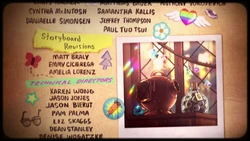 CYNTHIA MCINTOSH
DANIELLE SIMONSEN
SAMANTHA KALLIS
JEFFREY THOMPSON
PAUL TUO TSUI
Storyboard
Revisions
MATT BRALY
EMMY CICIEREGA
AMELIA LORENZ
TECHNICAL DIRECTORS
KAREN WONG
JASON JONES
JASON BIERUT
PAM PALMA
LIZ SKAGGS
DEAN STANLEY
DENISE WOGATZKE